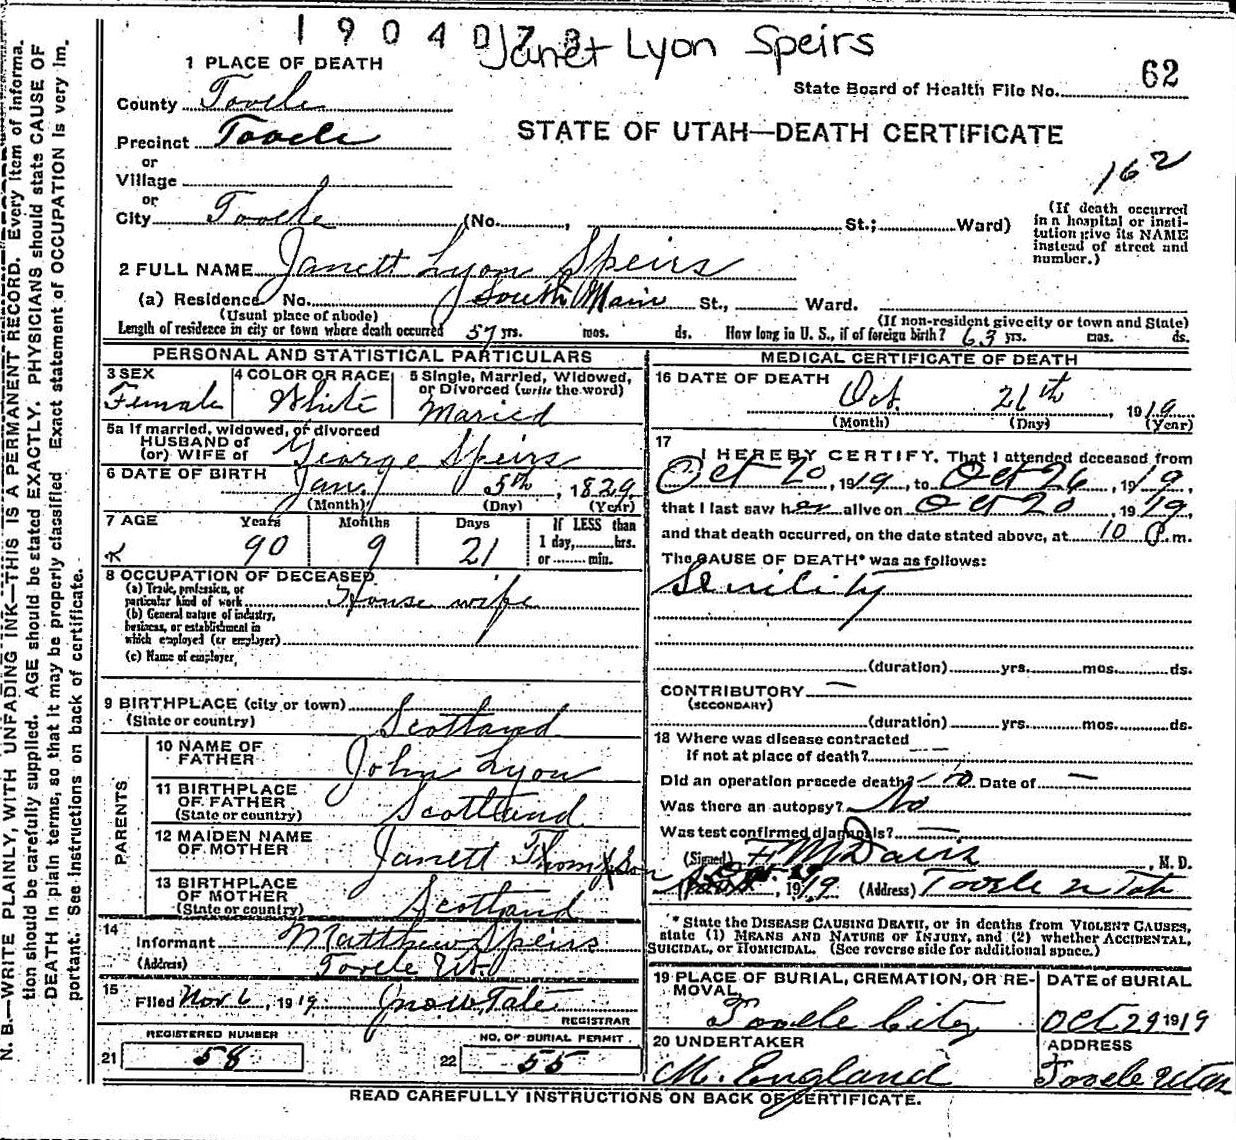 1904073
Janet Lyon Speirs
1 PLACE OF DEATH
State Board of Health File No. 62
County Tooele
STATE OF UTAH—DEATH CERTIFICATE
Precinct Tooele
or
Village
162
or
City Tooele (No. , St.; Ward)
(If death occurred in a hospital or institution give its NAME instead of street and number.)
2 FULL NAME Janett Lyon Speirs
(a) Residence No. South Main St., Ward.
(Usual place of abode) (If non-resident give city or town and State)
Length of residence in city or town where death occurred 57 yrs. mos. ds. How long in U. S., if of foreign birth? 63 yrs. mos. ds.
PERSONAL AND STATISTICAL PARTICULARS
3 SEX Female
4 COLOR OR RACE White
5 Single, Married, Widowed, or Divorced (write the word) Maried
5a If married, widowed, or divorced
HUSBAND of
(or) WIFE of George Speirs
6 DATE OF BIRTH Jan. 5th, 1829
(Month) (Day) (Year)
7 AGE Years Months Days If LESS than
90 9 21 1 day, hrs.
or min.
8 OCCUPATION OF DECEASED
(a) Trade, profession, or
particular kind of work House wife
(b) General nature of industry,
business, or establishment in
which employed (or employer)
(c) Name of employer,
9 BIRTHPLACE (city or town)
(State or country) Scotland
PARENTS
10 NAME OF FATHER John Lyon
11 BIRTHPLACE OF FATHER (State or country) Scotland
12 MAIDEN NAME OF MOTHER Janett Thompson
13 BIRTHPLACE OF MOTHER (State or country) Scotland
14 Informant Matthew Speirs
(Address) Tooele Ut.
15 Filed Nov 6, 1919
REGISTRAR
REGISTERED NUMBER NO. OF BURIAL PERMIT
21 58 22 55
MEDICAL CERTIFICATE OF DEATH
16 DATE OF DEATH Oct. 26th, 1919
(Month) (Day) (Year)
17 I HEREBY CERTIFY, That I attended deceased from
Oct 20, 1919, to Oct 26, 1919,
that I last saw her alive on Oct 20, 1919,
and that death occurred, on the date stated above, at 10 P.m.
The CAUSE OF DEATH* was as follows:
Senility
(duration) yrs. mos. ds.
CONTRIBUTORY —
(SECONDARY)
(duration) yrs. mos. ds.
18 Where was disease contracted
if not at place of death?
Did an operation precede death? no Date of —
Was there an autopsy? No
Was test confirmed diagnosis? —
(Signed) F M Davis, M. D.
, 1919 (Address) Tooele Utah
* State the DISEASE CAUSING DEATH, or in deaths from VIOLENT CAUSES,
state (1) MEANS AND NATURE OF INJURY, and (2) whether ACCIDENTAL,
SUICIDAL, or HOMICIDAL. (See reverse side for additional space.)
19 PLACE OF BURIAL, CREMATION, OR REMOVAL, Tooele City
DATE OF BURIAL Oct 29 1919
20 UNDERTAKER M. England
ADDRESS Tooele Utah
READ CAREFULLY INSTRUCTIONS ON BACK OF CERTIFICATE.
N. B.—WRITE PLAINLY, WITH UNFADING INK—THIS IS A PERMANENT RECORD. Every item of informa.
tion should be carefully supplied. AGE should be stated EXACTLY. PHYSICIANS should state CAUSE OF
DEATH in plain terms, so that it may be properly classified Exact statement of OCCUPATION is very im.
portant. See instructions on back of certificate.